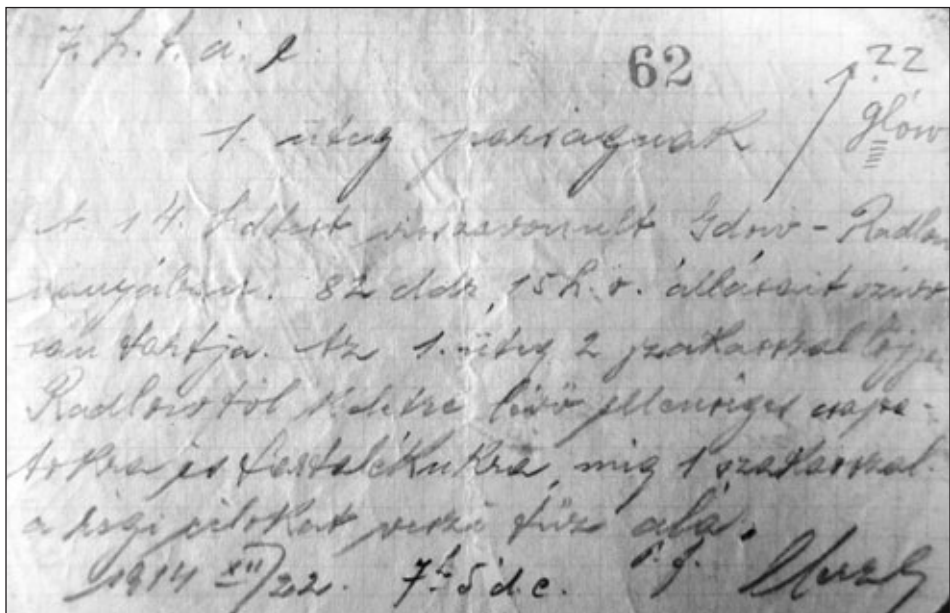 7. h. t. á. e
62
??
głów
1. üteg parságnak
A 14. hdtest visszavonult Gdow - Radlow
irányában. 82 ddr, 15 h. o. állásait szívo
san tartja. Az 1. üteg 2 szakasszal lőjjön
Radlowtól K-letre lévő ellenséges csapa-
tokra és tartalékukra, mig 1 szakasszal
a régi célokat veszi tűz alá.
1914 XII/22. 7h 5' d.e.